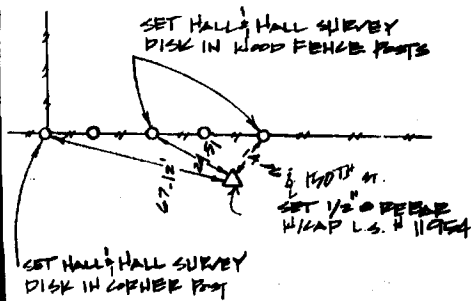 SET HALL & HALL SURVEY
DISK IN WOOD FENCE POSTS
67.12'
150TH ST.
SET 1/2" Ø REBAR
W/CAP L.S. # 11954
SET HALL & HALL SURVEY
DISK IN CORNER POST